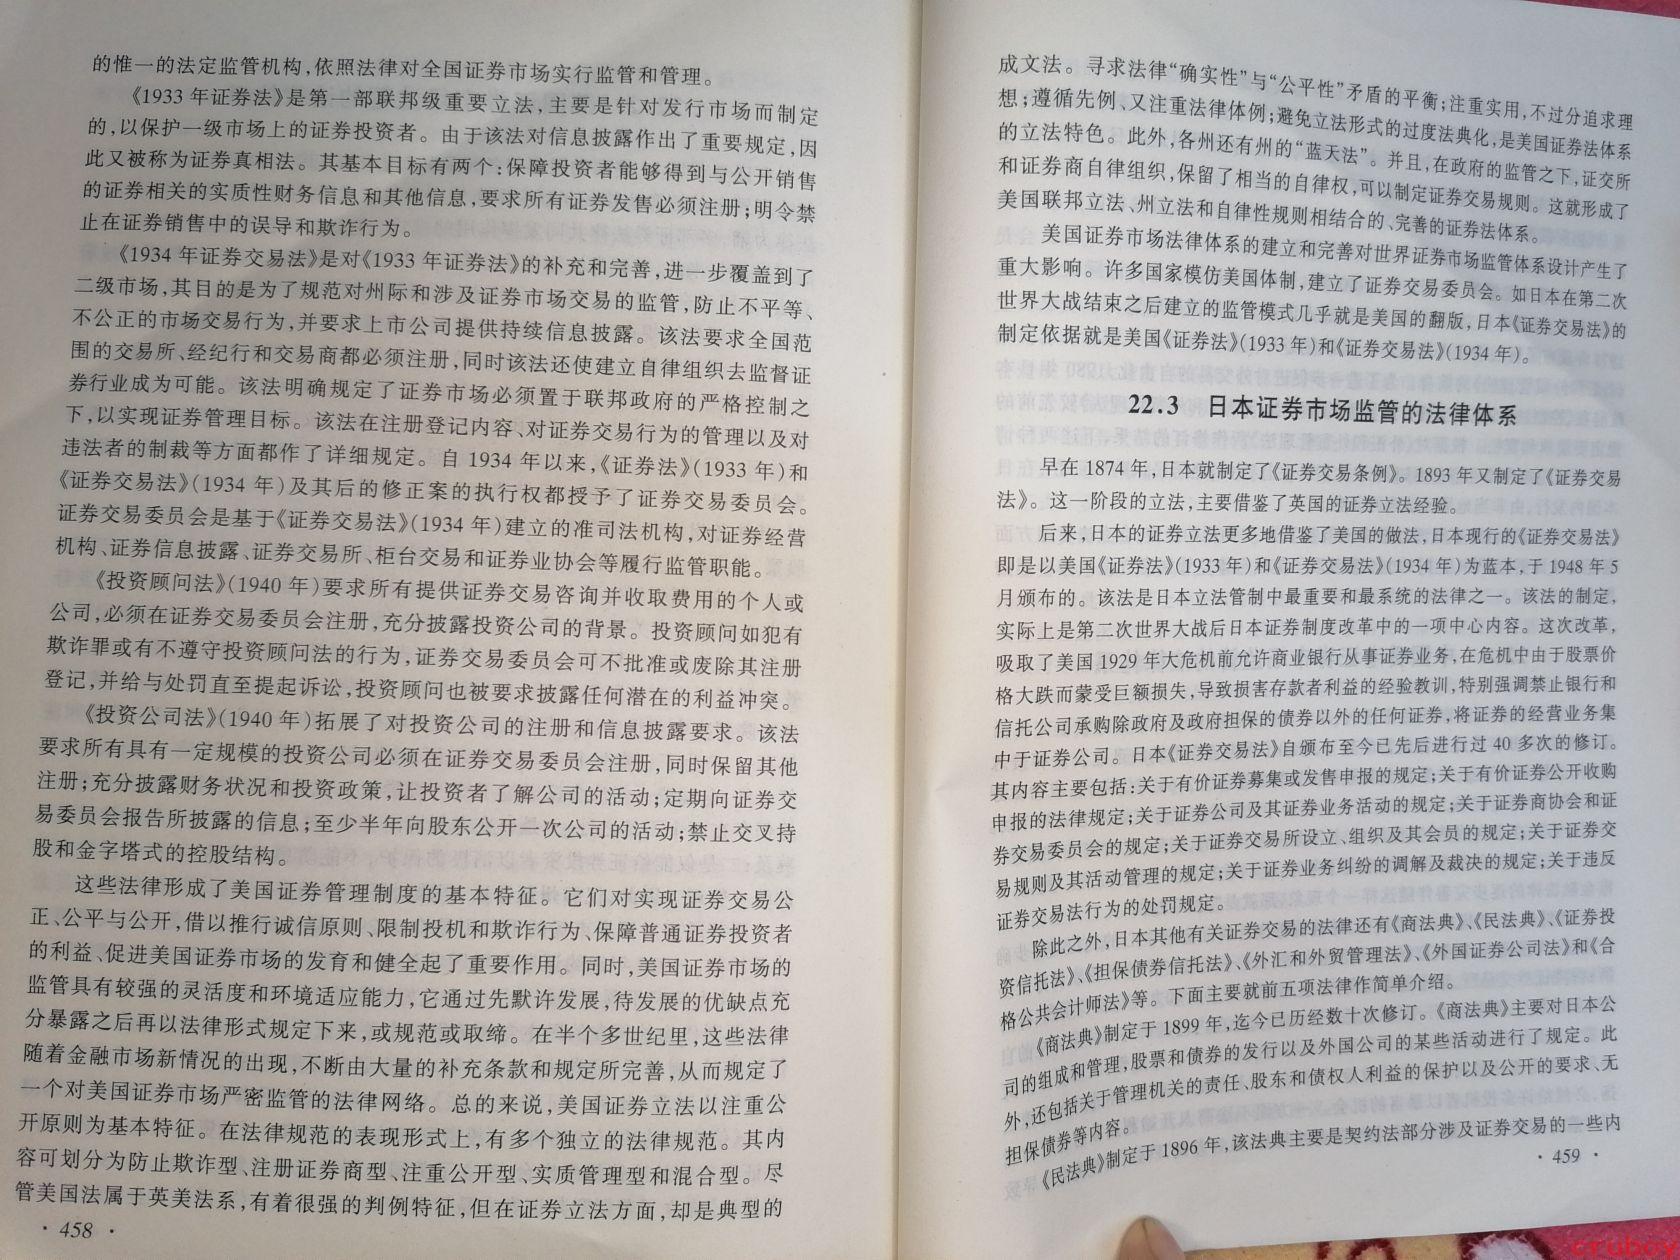 的惟一的法定监管机构,依照法律对全国证券市场实行监管和管理。
《1933 年证券法》是第一部联邦级重要立法,主要是针对发行市场而制定
的,以保护一级市场上的证券投资者。由于该法对信息披露作出了重要规定,因
此又被称为证券真相法。其基本目标有两个:保障投资者能够得到与公开销售
的证券相关的实质性财务信息和其他信息,要求所有证券发售必须注册;明令禁
止在证券销售中的误导和欺诈行为。
《1934 年证券交易法》是对《1933 年证券法》的补充和完善,进一步覆盖到了
二级市场,其目的是为了规范对州际和涉及证券市场交易的监管,防止不平等、
不公正的市场交易行为,并要求上市公司提供持续信息披露。该法要求全国范
围的交易所、经纪行和交易商都必须注册,同时该法还使建立自律组织去监督证
券行业成为可能。该法明确规定了证券市场必须置于联邦政府的严格控制之
下,以实现证券管理目标。该法在注册登记内容、对证券交易行为的管理以及对
违法者的制裁等方面都作了详细规定。自 1934 年以来,《证券法》(1933 年)和
《证券交易法》(1934 年)及其后的修正案的执行权都授予了证券交易委员会。
证券交易委员会是基于《证券交易法》(1934 年)建立的准司法机构,对证券经营
机构、证券信息披露、证券交易所、柜台交易和证券业协会等履行监管职能。
《投资顾问法》(1940 年)要求所有提供证券交易咨询并收取费用的个人或
公司,必须在证券交易委员会注册,充分披露投资公司的背景。投资顾问如犯有
欺诈罪或有不遵守投资顾问法的行为,证券交易委员会可不批准或废除其注册
登记,并给与处罚直至提起诉讼,投资顾问也被要求披露任何潜在的利益冲突。
《投资公司法》(1940 年)拓展了对投资公司的注册和信息披露要求。该法
要求所有具有一定规模的投资公司必须在证券交易委员会注册,同时保留其他
注册;充分披露财务状况和投资政策,让投资者了解公司的活动;定期向证券交
易委员会报告所披露的信息;至少半年向股东公开一次公司的活动;禁止交叉持
股和金字塔式的控股结构。
这些法律形成了美国证券管理制度的基本特征。它们对实现证券交易公
正、公平与公开,借以推行诚信原则、限制投机和欺诈行为、保障普通证券投资者
的利益、促进美国证券市场的发育和健全起了重要作用。同时,美国证券市场的
监管具有较强的灵活度和环境适应能力,它通过先默许发展,待发展的优缺点充
分暴露之后再以法律形式规定下来,或规范或取缔。在半个多世纪里,这些法律
随着金融市场新情况的出现,不断由大量的补充条款和规定所完善,从而规定了
一个对美国证券市场严密监管的法律网络。总的来说,美国证券立法以注重公
开原则为基本特征。在法律规范的表现形式上,有多个独立的法律规范。其内
容可划分为防止欺诈型、注册证券商型、注重公开型、实质管理型和混合型。尽
管美国法属于英美法系,有着很强的判例特征,但在证券立法方面,却是典型的
· 458 ·
成文法。寻求法律“确实性”与“公平性”矛盾的平衡;注重实用,不过分追求理
想;遵循先例、又注重法律体例;避免立法形式的过度法典化,是美国证券法体系
的立法特色。此外,各州还有州的“蓝天法”。并且,在政府的监管之下,证交所
和证券商自律组织,保留了相当的自律权,可以制定证券交易规则。这就形成了
美国联邦立法、州立法和自律性规则相结合的、完善的证券法体系。
美国证券市场法律体系的建立和完善对世界证券市场监管体系设计产生了
重大影响。许多国家模仿美国体制,建立了证券交易委员会。如日本在第二次
世界大战结束之后建立的监管模式几乎就是美国的翻版,日本《证券交易法》的
制定依据就是美国《证券法》(1933 年)和《证券交易法》(1934 年)。
22.3 日本证券市场监管的法律体系
早在 1874 年,日本就制定了《证券交易条例》。1893 年又制定了《证券交易
法》。这一阶段的立法,主要借鉴了英国的证券立法经验。
后来,日本的证券立法更多地借鉴了美国的做法,日本现行的《证券交易法》
即是以美国《证券法》(1933 年)和《证券交易法》(1934 年)为蓝本,于 1948 年 5
月颁布的。该法是日本立法管制中最重要和最系统的法律之一。该法的制定,
实际上是第二次世界大战后日本证券制度改革中的一项中心内容。这次改革,
吸取了美国 1929 年大危机前允许商业银行从事证券业务,在危机中由于股票价
格大跌而蒙受巨额损失,导致损害存款者利益的经验教训,特别强调禁止银行和
信托公司承购除政府及政府担保的债券以外的任何证券,将证券的经营业务集
中于证券公司。日本《证券交易法》自颁布至今已先后进行过 40 多次的修订。
其内容主要包括:关于有价证券募集或发售申报的规定;关于有价证券公开收购
申报的法律规定;关于证券公司及其证券业务活动的规定;关于证券商协会和证
券交易委员会的规定;关于证券交易所设立、组织及其会员的规定;关于证券交
易规则及其活动管理的规定;关于证券业务纠纷的调解及裁决的规定;关于违反
证券交易法行为的处罚规定。
除此之外,日本其他有关证券交易的法律还有《商法典》、《民法典》、《证券投
资信托法》、《担保债券信托法》、《外汇和外贸管理法》、《外国证券公司法》和《合
格公共会计师法》等。下面主要就前五项法律作简单介绍。
《商法典》制定于 1899 年,迄今已历经数十次修订。《商法典》主要对日本公
司的组成和管理,股票和债券的发行以及外国公司的某些活动进行了规定。此
外,还包括关于管理机关的责任、股东和债权人利益的保护以及公开的要求、无
担保债券等内容。
《民法典》制定于 1896 年,该法典主要是契约法部分涉及证券交易的一些内
· 459 ·